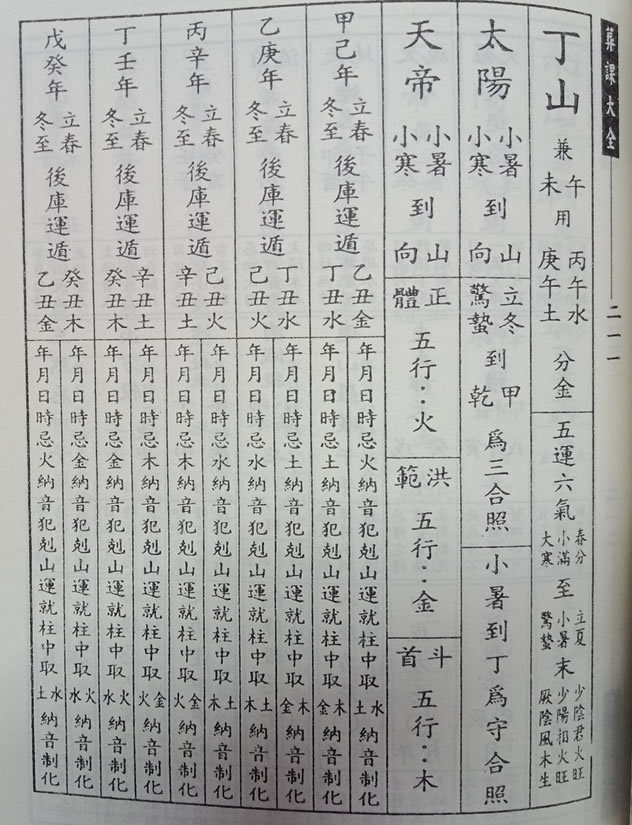 葬課大全
二一一
丁山 兼 午未 用 丙午水 庚午土 分金
五運六氣 春分 小滿 大寒 至 立夏 小暑 驚蟄 末 少陰君火旺 少陽相火旺 厥陰風木生
太陽 小暑 小寒 到 山 向
立冬 驚蟄 到 甲 乾 為三合照
小暑到丁為守合照
天帝 小暑 小寒 到 山 向
正體五行：火
洪範五行：金
斗首五行：木
甲己年 立春 冬至 後庫運遁 乙丑金 丁丑水
年月日時忌火納音犯剋山運就柱中取水土納音制化
年月日時忌土納音犯剋山運就柱中取木金納音制化
乙庚年 立春 冬至 後庫運遁 丁丑水 己丑火
年月日時忌土納音犯剋山運就柱中取木金納音制化
年月日時忌水納音犯剋山運就柱中取土木納音制化
丙辛年 立春 冬至 後庫運遁 己丑火 辛丑土
年月日時忌水納音犯剋山運就柱中取土木納音制化
年月日時忌木納音犯剋山運就柱中取金火納音制化
丁壬年 立春 冬至 後庫運遁 辛丑土 癸丑木
年月日時忌木納音犯剋山運就柱中取金火納音制化
年月日時忌金納音犯剋山運就柱中取火水納音制化
戊癸年 立春 冬至 後庫運遁 癸丑木 乙丑金
年月日時忌金納音犯剋山運就柱中取火水納音制化
年月日時忌火納音犯剋山運就柱中取水土納音制化